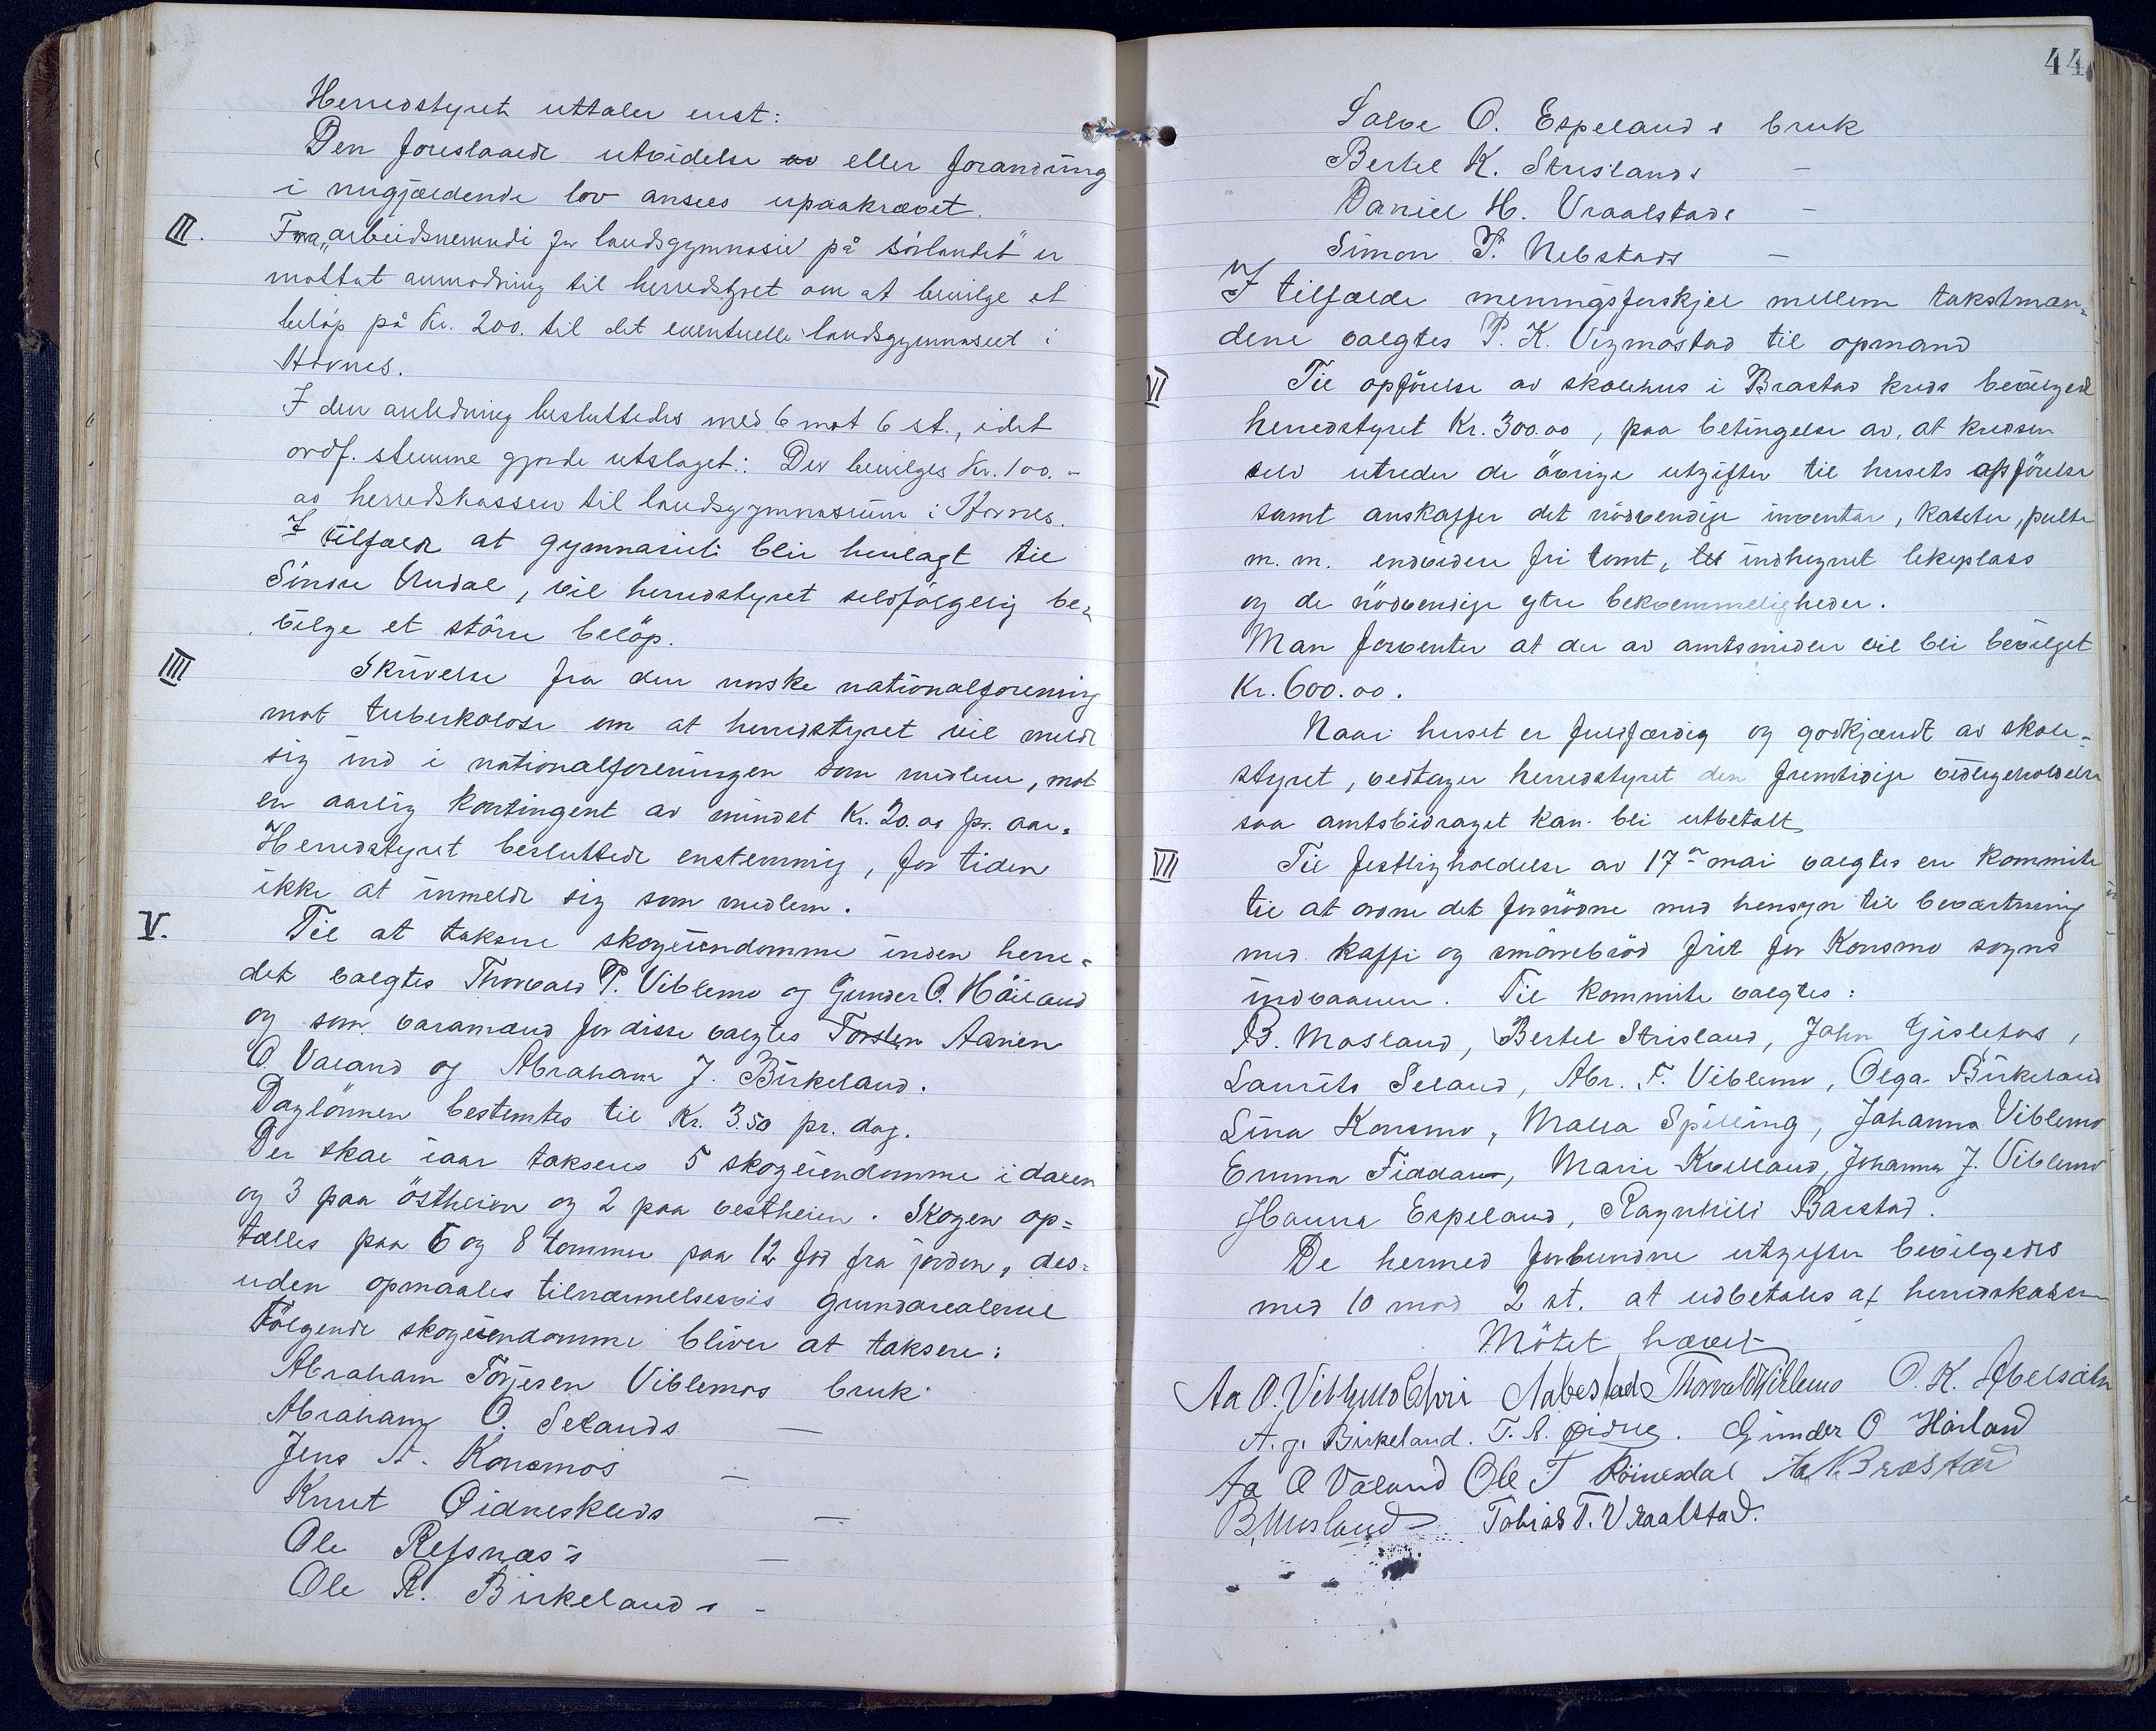 Herredstyret uttaler enst:
Den foreslaaede utvidelse av eller forandring
i nugjældende lov ansees upaakrævet.
III. Fra „arbeidsnemndi for landsgymnasie på Sörlandet" er
mottat anmodning til herredstyret om at bevilge et
belöp på Kr. 200. til det eventuelle landsgymnaseet i
Hornes.
I den anledning besluttedes med 6 mot 6 st., idet
ordf. stemme gjorde utslaget: Der bevilges Kr. 100.-
av herredskassen til landsgymnasium i Hornes.
I tilfælde at gymnasiet blir henlagt til
Söndre Undal, vil herredstyret selvfölgelig be=
vilge et större belöp.
IIII Skrivelse fra den norske nationalforening
mot tuberkolose om at herredstyret vil melde
sig ind i nationalforeningen som medlem, mot
en aarlig kontingent av mindst Kr. 20.00 pr. aar.
Herredstyret besluttede enstemmig, for tiden
ikke at inmelde sig som medlem.
V. Til at taksere skogeiendomme inden herre=
det valgtes Thorvald P. Viblemo og Gunder O. Höiland
og som varamænd for disse valgtes Torsten Aanen
O. Valand og Abraham J. Birkeland.
Daglönnen bestemtes til Kr. 3.50 pr. dag.
Der skal iaar takseres 5 skogeiendomme i dalen
og 3 paa östheien og 2 paa vestheien. Skogen op=
tælles paa 6 og 8 tommer paa 12 fod fra jorden, des=
uden opmaales tilnærmelsesvis grundarealerne
Fölgende skogeiendomme bliver at taksere:
Abraham Torjesen Viblemos bruk
Abraham O. Selands —
Jens A. Konsmos —
Knut Øidneskleivs —
Ole Refsnæs's —
Ole R. Birkelands -
44
Salve O. Espelands bruk
Bertel K. Strislands —
Daniel H. Vraalstads —
Simon T. Nebstads —
I tilfælde meningsforskjel mellem takstmæn=
dene valgtes P. K. Vigmostad til opmand
VI Til opförelse av skolehus i Brastad kreds bevilgede
herredstyret Kr. 300.00, paa betingelse av, at kredsen
selv utreder de övrige utgifter til husets opförelse
samt anskaffer det nödvendige inventar, kateter, pulte
m. m. endvidere fri tomt, til indhegnet lekeplass
og de nödvendige ytre bekvemmeligheder.
Man forventer at der av amtsmidler vil bli bevilget
Kr. 600.00.
Naar huset er fuldfærdig og godkjændt av skole=
styret, vedtager herredstyret den fremtidige vedligeholdelse
saa amtsbidraget kan bli utbetalt
VII Til festligholdelse av 17de mai valgtes en kommite
til at ordne det fornödne med hensyn til bevertning
med kaffi og smörrebröd frit for Konsmo sogns
indvaanere. Til kommite valgtes:
B. Mosland, Bertel Strisland, John Gislefos,
Laurits Seland, Abr. T. Viblemo, Olga Birkeland
Lina Konsmo, Malla Spilling, Johanna Viblemo
Emma Fiddan, Marie Kvelland, Johanna J. Viblemo
Hanna Espeland, Ragnhild Barstad.
De hermed forbundne utgifter bevilgedes
med 10 mod 2 st. at udbetales af herredskassen
Mötet hævet
Aa O. Viblemo Chri Aabestad Thorvald Viblemo O. K. Abelsæth
A. J. Birkeland. T. A. Øidne. Gunder O Höiland
Aa O Valand Ole T Röinesdal Aa N. Brastad
B. Mosland Tobias T. Vraalstad.